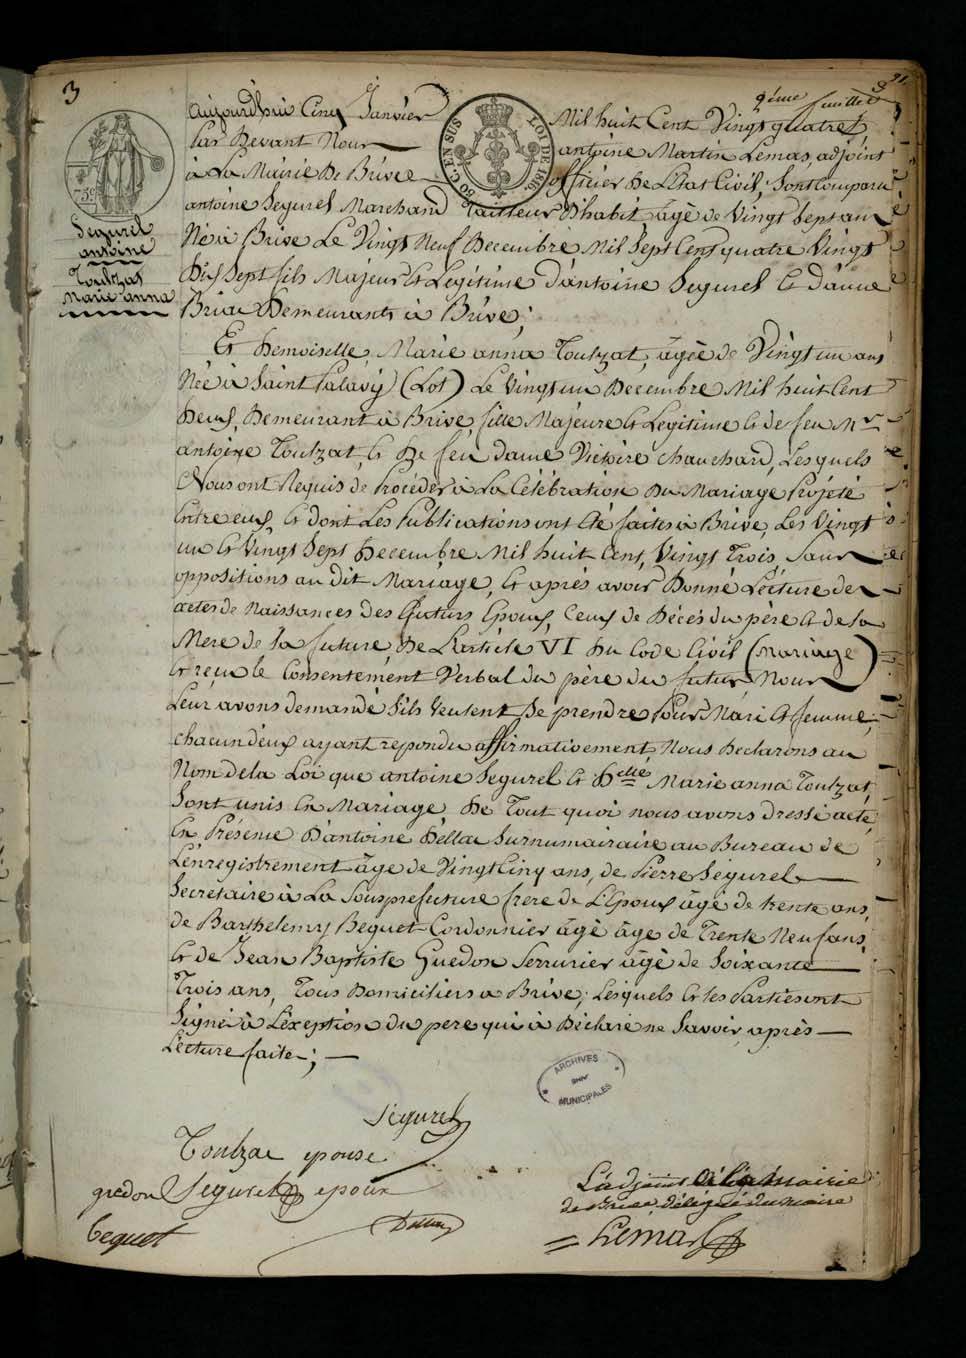 3
9ème feuillet
75c
50 C. EN SUS
LOI DE 1816
Segurel
antoine
Toulzat
Marie anna
aujourd'hui Cinq Janvier Mil huit Cent Vingt quatre
Par Devant Nous antoine Martin Lemas, adjoint
à La Mairie De Brive officier De L'Etat Civil, Sont Comparu
antoine Segurel Marchand Tailleur D'habit âgé de Vingt Sept ans
Né à Brive Le Vingt Neuf Decembre Mil Sept Cent quatre Vingt
Dix Sept fils Majeur et Legitime d'antoine Segurel et dame
Demeurants à Brive;
Et Demoiselle Marie anna Toulzat, âgée de Vingt un ans
Née à Saint Palavÿ (Lot) Le Vingt un Decembre Mil huit Cent
Deux, Demeurant à Brive fille Majeure et Legitime et de feu Mr
antoine Toulzat, et De feu dame Victoire chauchard, Lesquels
Nous ont Requis de Procéder à La Célébration Du Mariage Projeté
Entre eux, et dont Les Publications ont été faites à Brive, Les Vingt
un et Vingt Sept Decembre Mil huit Cent, Vingt Trois, Sans
oppositions au dit Mariage, et après avoir Donné Lecture des
actes de Naissances des futurs Epoux, Ceux de Décès du père et de la
Mere de la future, De L'article VI Du Code Civil (Mariage)
et reçu le Consentement Verbal du père du futur, Nous
Leur avons demandé s'ils veulent Se prendre Pour Mari et femme,
chacun d'eux ayant repondu affirmativement, Nous Declarons au
Nom de la Loi que antoine Segurel et Delle Marie anna Toulzat,
Sont unis en Mariage De Tout quoi nous avons dressé acte,
En Présence D'antoine Dellac Surnumairaire au Bureau de
L'enregistrement âge de Vingt Cinq ans, de Pierre Segurel
Secretaire à La Sousprefecture frere de L'Epoux âgé de trente ans,
de Barthelemy Bequet Cordonnier âgé âge de Trente Neuf ans,
et de Jean Baptiste Guedon Serrurier âgé de Soixante
Trois ans, Tous Domiciliers a Brive; Lesquels et les Parties ont
Signé à L'exeption du pere qui à Déclaré ne Savoir, après
Lecture faite;
ARCHIVES
BRIVE
MUNICIPALES
Segurel
Toulzac epouse
guedon Segurel epoux
bequet
L'adjoint à la Mairie
de Brive délégué du maire
Lemas